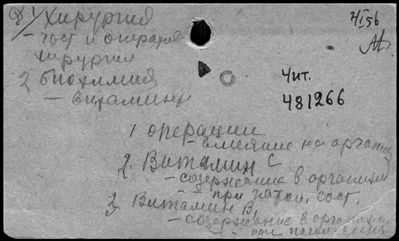 1/ Хирургия
- гост и операт
хирургия
2 биохимия
- витамины
Чит.
481266
1 операции
- влияние на организм
2. Витамин С
- содержание в организме
при патол. сост.
3. Витамин В1
- содержание в организме
при патол. сост.